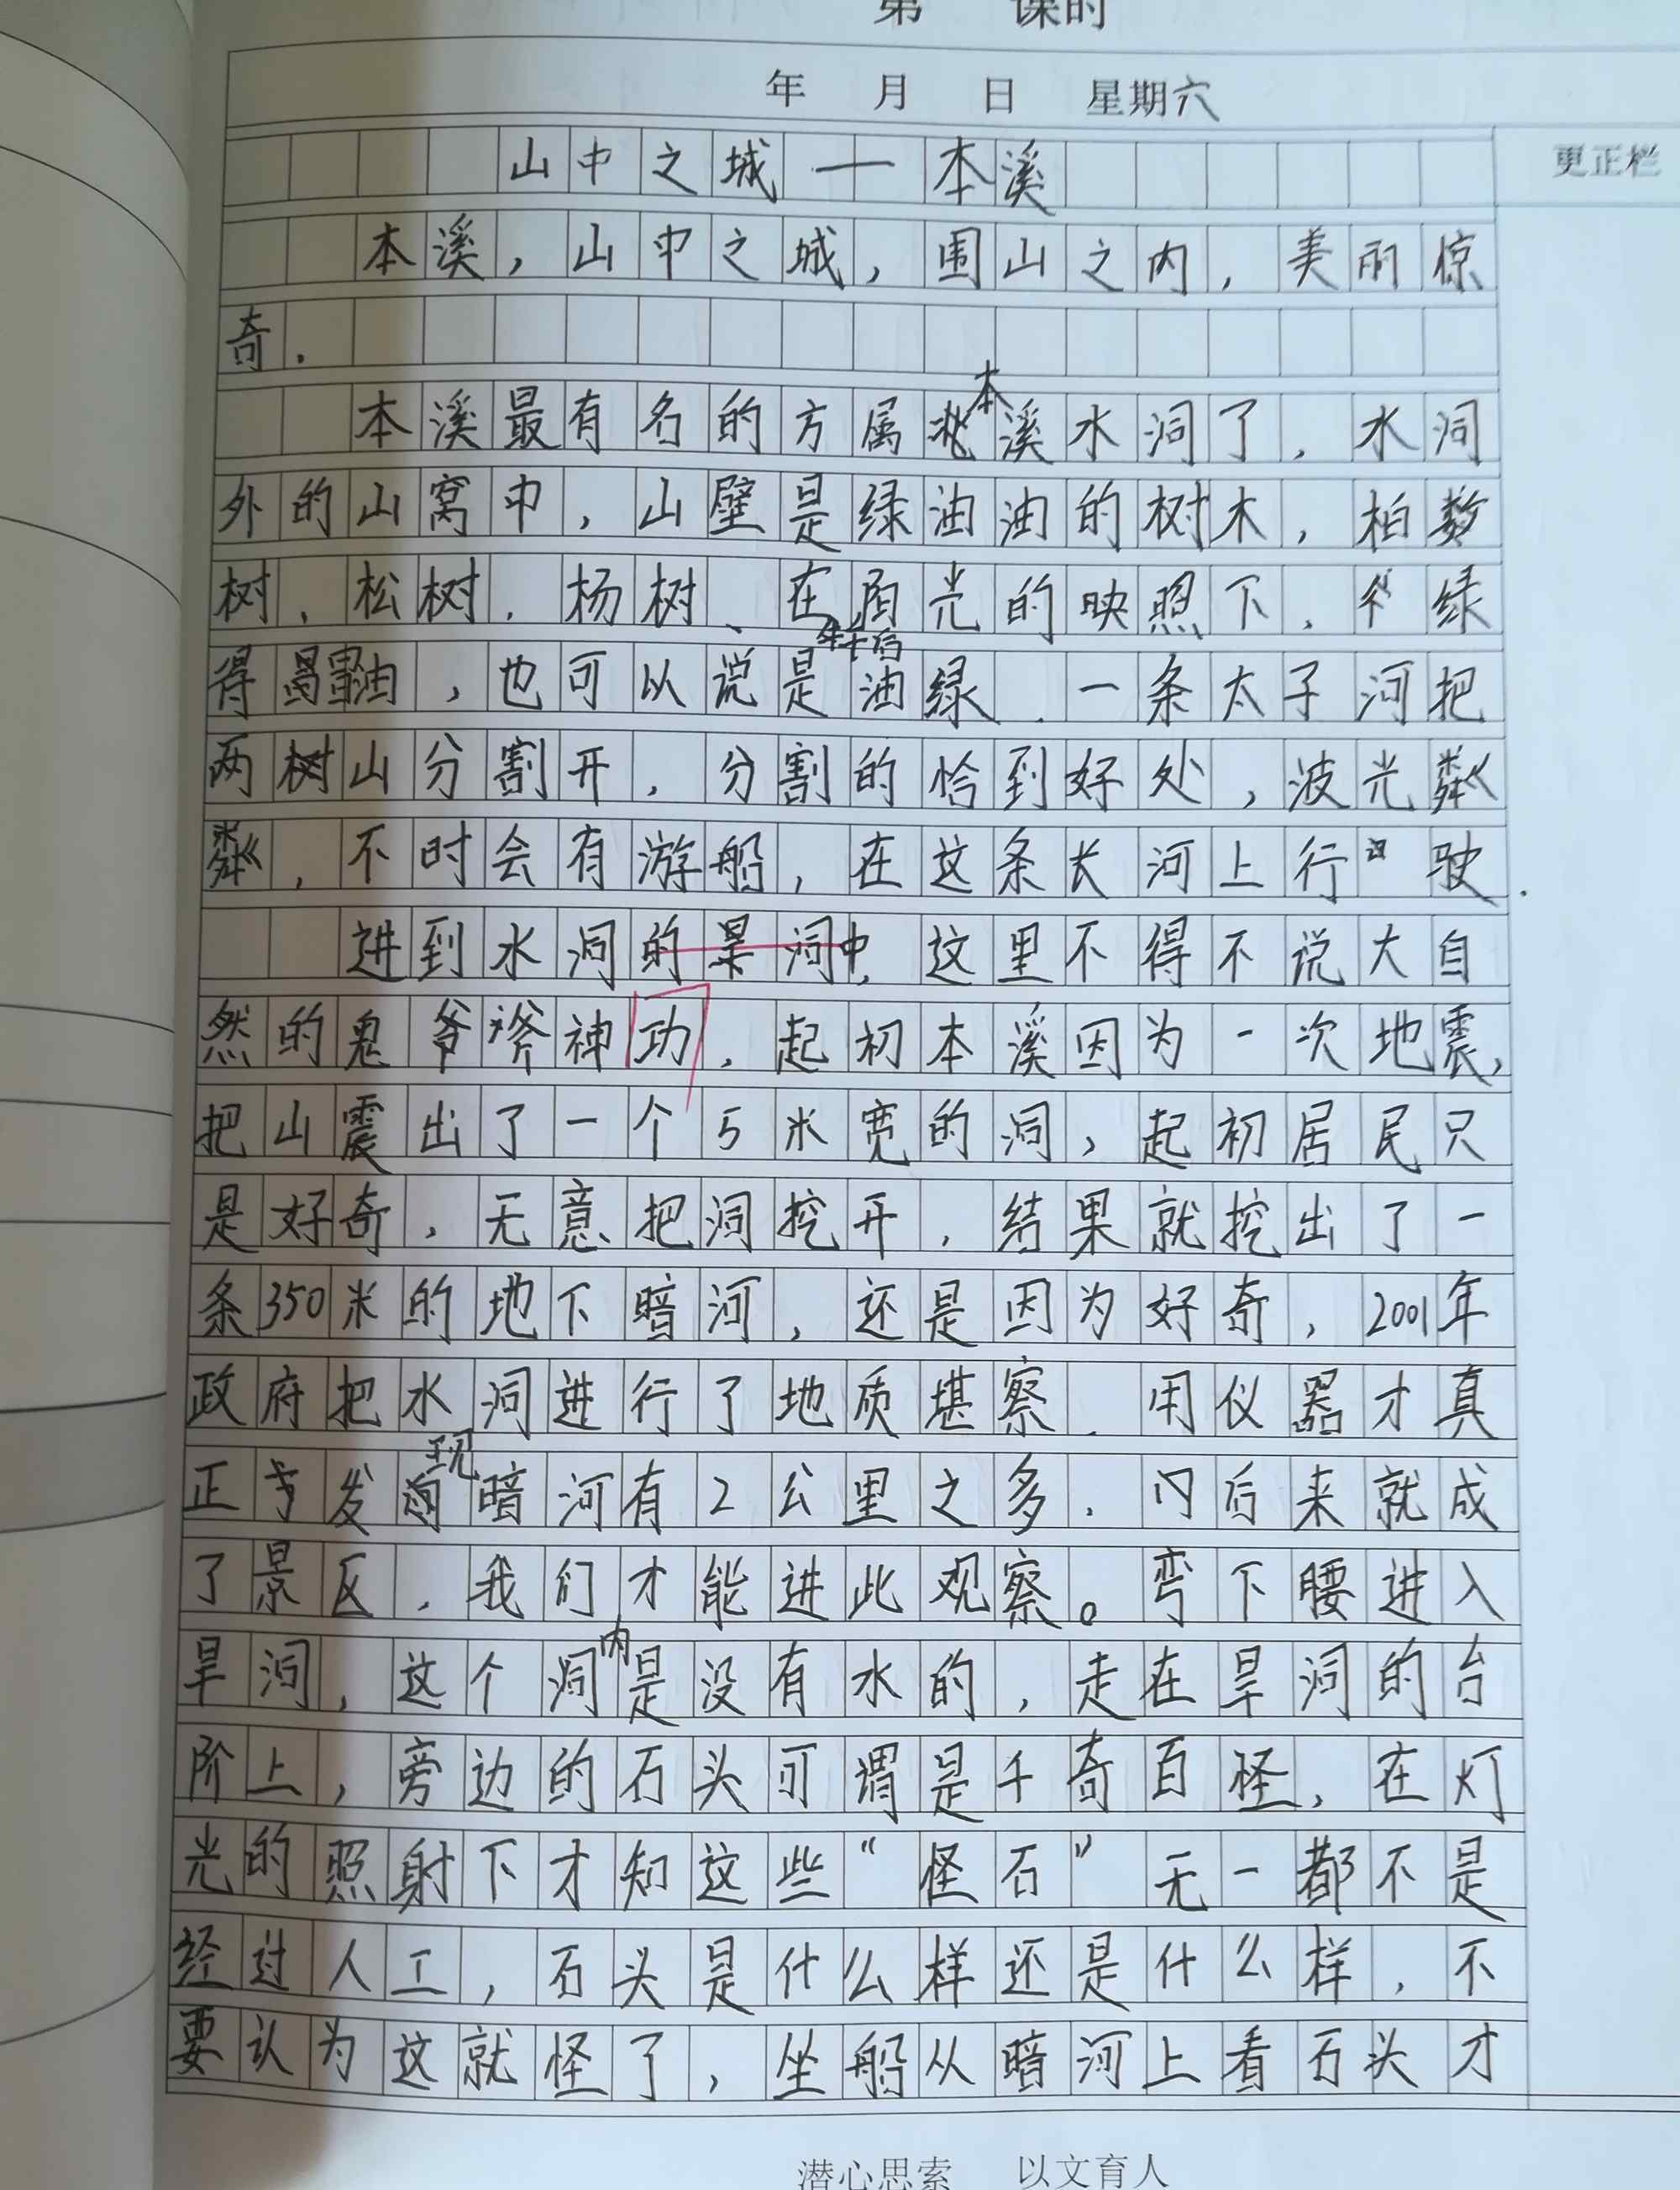 第 课时
年 月 日 星期六
更正栏
山中之城——本溪
本溪,山中之城,围山之内,美丽惊
奇.
本溪最有名的方属本溪水洞了.水洞
外的山窝中,山壁是绿油油的树木,柏
树.松树.杨树、在 光的映照下.绿
得 油,也可以说是 油绿.一条太子河把
两树山分割开.分割的恰到好处,波光粼
粼,不时会有游船,在这条长河上行驶.
进到水洞的旱洞中,这里不得不说大自
然的鬼爷斧神功.起初本溪因为一次地震,
把山震出了一个5米宽的洞,起初居民只
是好奇.无意把洞挖开.结果就挖出了一
条350米的地下暗河,还是因为好奇,2001年
政府把水洞进行了地质堪察.用仪器才真
正 发现暗河有2公里之多.后来就成
了景区.我们才能进此观察。弯下腰进入
旱洞,这个洞内是没有水的,走在旱洞的台
阶上,旁边的石头可谓是千奇百怪,在灯
光的照射下才知这些“怪石”无一都不是
经过人工,石头是什么样还是什么样,不
要认为这就怪了,坐船从暗河上看石头才
潜心思索 以文育人